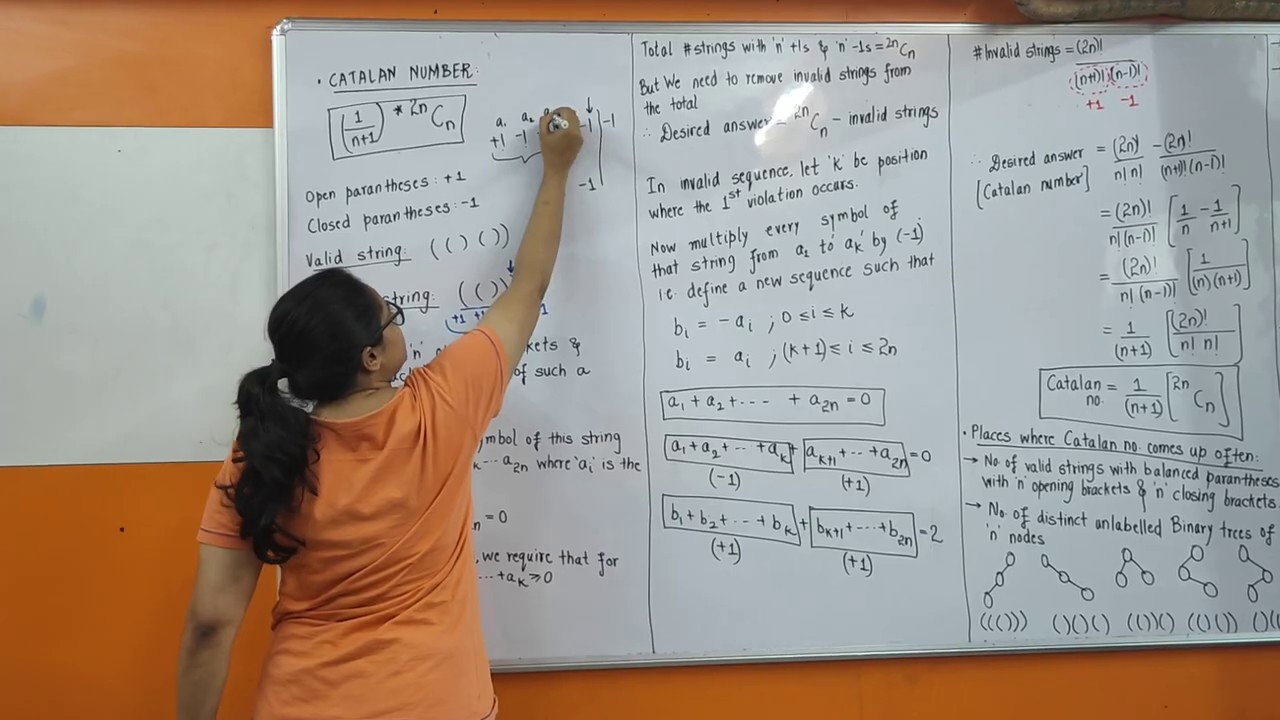 • CATALAN NUMBER:
(1/(n+1)) * 2nCn
a1 a2
+1 -1 -1 | -1
-1
Open parantheses: +1
Closed parantheses: -1
Valid string: (()())
string: (())
+1 +1
'n'
kets &
of such a
mbol of this string
k... a2n where 'ai' is the
n = 0
, we require that for
... + ak ≥ 0
Total # strings with 'n' +1s & 'n' -1s = 2nCn
But We need to remove invalid strings from
the total
∴ Desired answer = 2nCn - invalid strings
In invalid sequence, let 'k' be position
where the 1st violation occurs.
Now multiply every symbol of
that string from a2 to ak by (-1)
i.e. define a new sequence such that
bi = -ai ; 0 ≤ i ≤ k
bi = ai ; (k+1) ≤ i ≤ 2n
a1 + a2 + --- + a2n = 0
a1 + a2 + -- + ak + ak+1 + -- + a2n = 0
(-1) (+1)
b1 + b2 + -- + bk + bk+1 + --- + b2n = 2
(+1) (+1)
# Invalid strings = (2n)!/((n+1)! (n-1)!)
+1 -1
∴ Desired answer = (2n)!/(n! n!) - (2n)!/((n+1)! (n-1)!)
[Catalan number]
= (2n)!/(n! (n-1)!) [1/n - 1/(n+1)]
= (2n)!/(n! (n-1)!) [1/((n)(n+1))]
= 1/(n+1) [(2n)!/(n! n!)]
Catalan no. = 1/(n+1) [2nCn]
• Places where Catalan no. comes up often:
→ No. of valid strings with balanced parantheses
with 'n' opening brackets & 'n' closing brackets.
→ No. of distinct unlabelled Binary trees of
'n' nodes
((())) ()()() (())() (()()) ()((